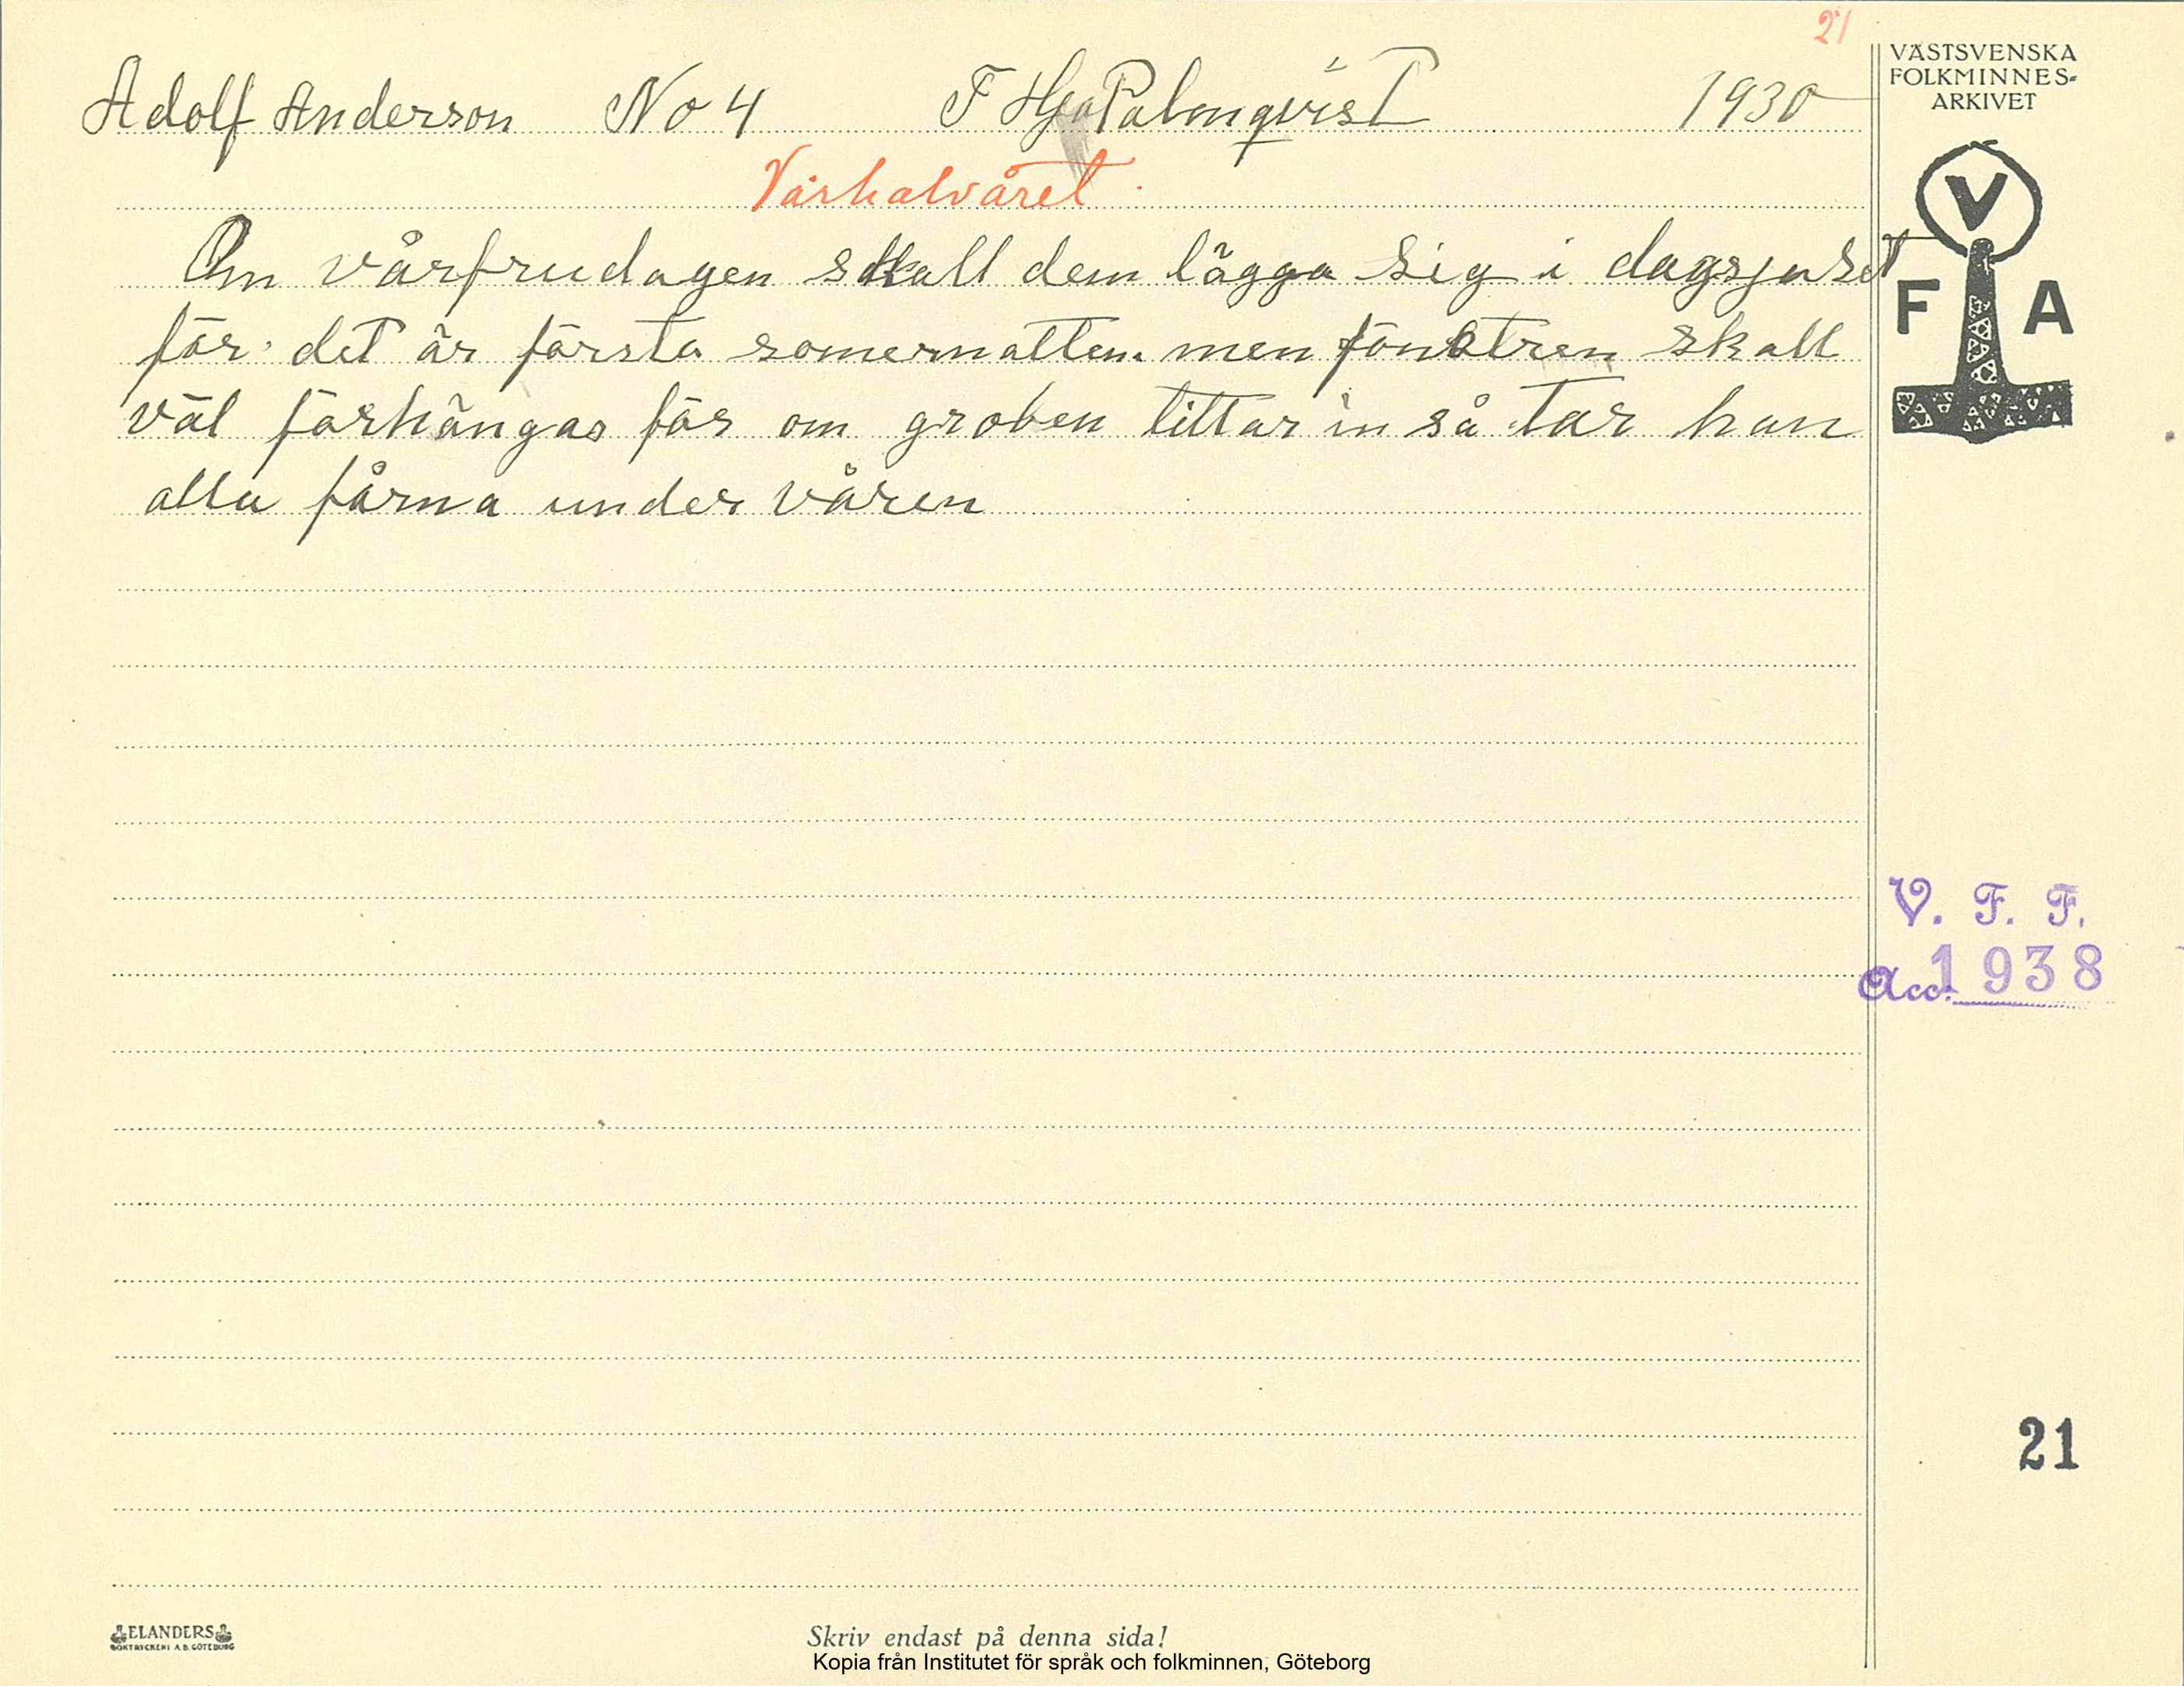 21
VÄSTSVENSKA
FOLKMINNES-
ARKIVET
Adolf Anderson No 4 F Hja Palmqvist 1930
Vårhalvåret
V
F A
Om vårfrudagen skall dem lägga sig i dagsjuset
för det är första somernatten. men fönstren skall
väl förhängas för om groben tittar in så tar han
alla fårna under våren
V. F. F.
Acc. 1938
21
ELANDERS
BOKTRYCKERI A.B. GÖTEBORG
Skriv endast på denna sida!
Kopia från Institutet för språk och folkminnen, Göteborg